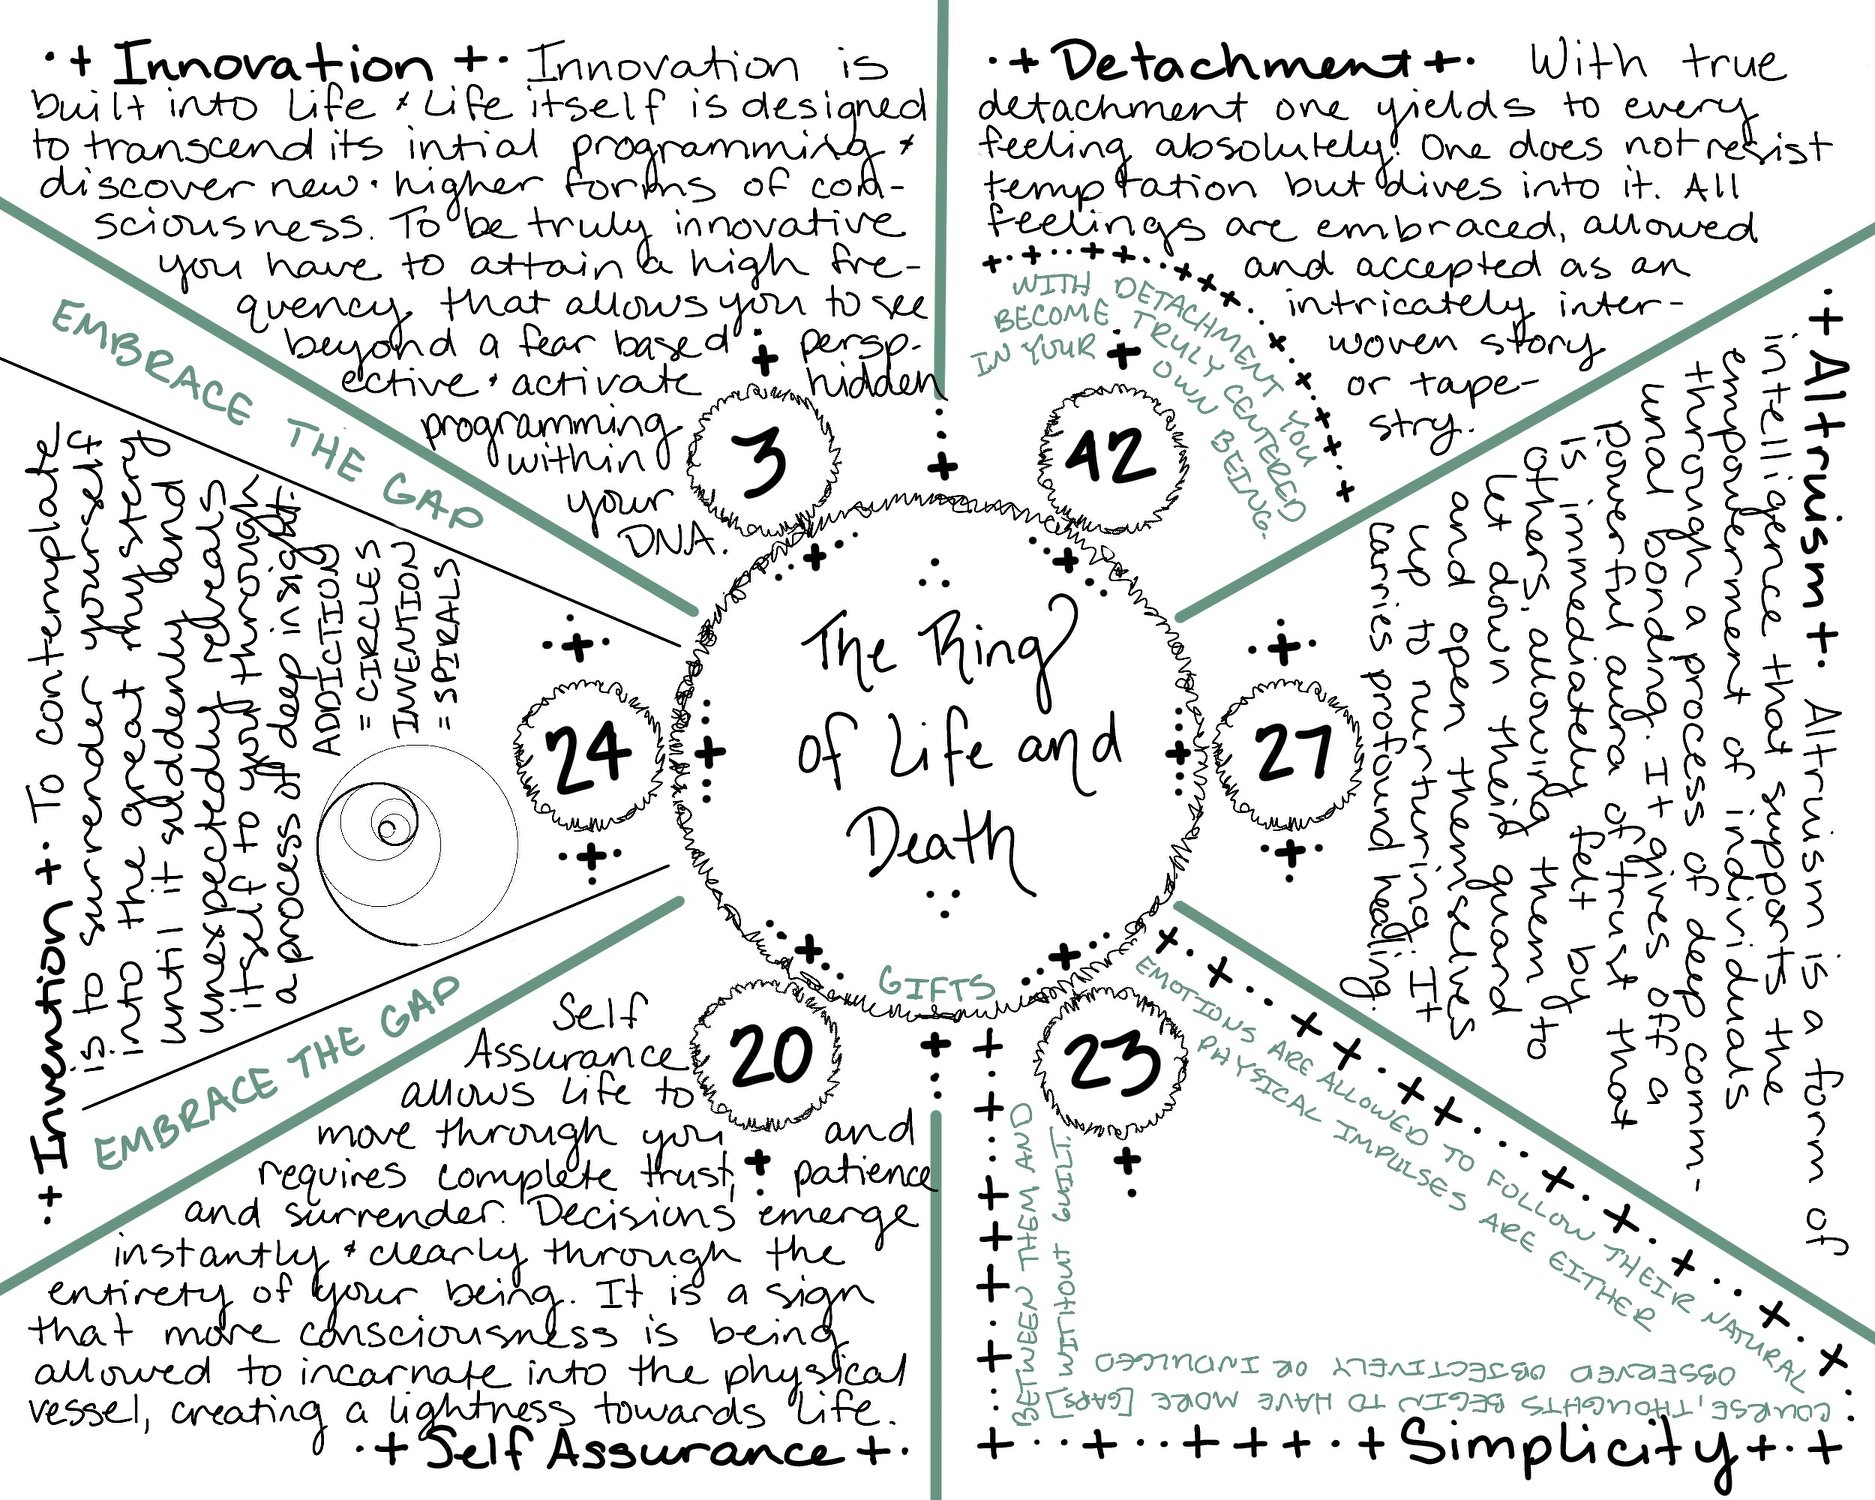 ·+ Innovation +· Innovation is
built into life + life itself is designed
to transcend its intial programming +
discover new · higher forms of con-
sciousness. To be truly innovative
you have to attain a high fre-
quency that allows you to see
beyond a fear based persp-
ective · activate hidden
programming
within
your
DNA.
3
·+ Detachment +· With true
detachment one yields to every
feeling absolutely. One does not resist
temptation but dives into it. All
feelings are embraced, allowed
and accepted as an
intricately inter-
woven story
or tape-
stry.
WITH DETACHMENT YOU
BECOME TRULY CENTERED
IN YOUR OWN BEING.
42
·+ Altruism +· Altruism is a form of
intelligence that supports the
empowerment of individuals
through a process of deep comm-
unal bonding. It gives off a
powerful aura of trust that
is immediately felt by
others, allowing them to
let down their guard
and open themselves
up to nurturing. It
carries profound healing.
27
EMOTIONS ARE ALLOWED TO FOLLOW THEIR NATURAL
COURSE, THOUGHTS BEGIN TO HAVE MORE [GAPS]
BETWEEN THEM AND
PHYSICAL IMPULSES ARE EITHER
OBSERVED OBJECTIVELY OR INDULGED
WITHOUT GUILT.
23
+ Simplicity +
Self
Assurance
allows life to
move through you and
requires complete trust, patience
and surrender. Decisions emerge
instantly + clearly through the
entirety of your being. It is a sign
that more consciousness is being
allowed to incarnate into the physical
vessel, creating a lightness towards life.
·+ Self Assurance +·
20
EMBRACE THE GAP
·+ Invention +· To contemplate
is to surrender yourself
into the great mystery
until it suddenly and
unexpectedly reveals
itself to you through
a process of deep insight.
ADDICTION
= CIRCLES
INVENTION
= SPIRALS
24
EMBRACE THE GAP
The Ring
of Life and
Death
GIFTS